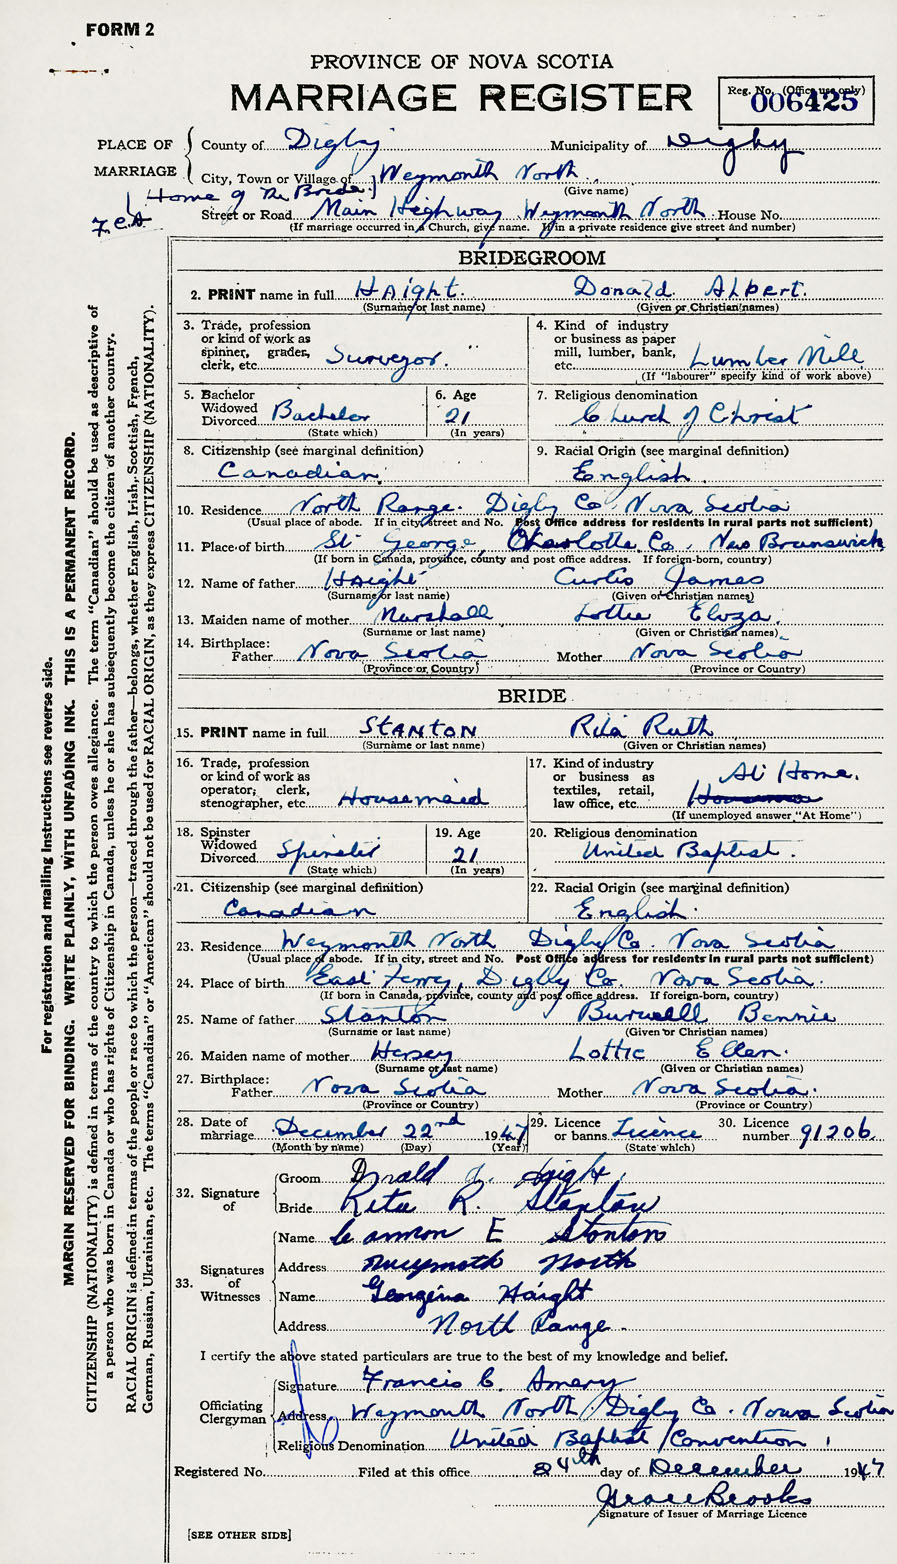 FORM 2
PROVINCE OF NOVA SCOTIA
MARRIAGE REGISTER
Reg. No. (Office use only)
006425
PLACE OF MARRIAGE
County of Digby Municipality of Digby
City, Town or Village of Weymouth North
(Give name)
Home of The Bride
F.C.A
Street or Road Main Highway Weymouth North House No.
(If marriage occurred in a Church, give name. If in a private residence give street and number)
BRIDEGROOM
2. PRINT name in full Haight. Donald Albert.
(Surname or last name) (Given or Christian names)
3. Trade, profession or kind of work as spinner, grader, clerk, etc. Surveyor.
4. Kind of industry or business as paper mill, lumber, bank, etc. Lumber Mill
(If "labourer" specify kind of work above)
5. Bachelor Widowed Divorced Bachelor
(State which)
6. Age 21
(In years)
7. Religious denomination
Church of Christ
8. Citizenship (see marginal definition)
Canadian
9. Racial Origin (see marginal definition)
English
10. Residence North Range. Digby Co. Nova Scotia
(Usual place of abode. If in city street and No. Post Office address for residents in rural parts not sufficient)
11. Place of birth St George, Charlotte Co. New Brunswick
(If born in Canada, province, county and post office address. If foreign-born, country)
12. Name of father Haight Curtis James
(Surname or last name) (Given or Christian names)
13. Maiden name of mother Marshall Lottie Eliza.
(Surname or last name) (Given or Christian names)
14. Birthplace:
Father Nova Scotia Mother Nova Scotia
(Province or Country) (Province or Country)
BRIDE
15. PRINT name in full STANTON Rita Ruth
(Surname or last name) (Given or Christian names)
16. Trade, profession or kind of work as operator, clerk, stenographer, etc. Housemaid
17. Kind of industry or business as textiles, retail, law office, etc. At Home.
(If unemployed answer "At Home")
18. Spinster Widowed Divorced Spinster
(State which)
19. Age 21
(In years)
20. Religious denomination
United Baptist.
21. Citizenship (see marginal definition)
Canadian
22. Racial Origin (see marginal definition)
English.
23. Residence Weymouth North Digby Co. Nova Scotia
(Usual place of abode. If in city, street and No. Post Office address for residents in rural parts not sufficient)
24. Place of birth East Ferry, Digby Co. Nova Scotia
(If born in Canada, province, county and post office address. If foreign-born, country)
25. Name of father Stanton Burwell Bennie
(Surname or last name) (Given or Christian names)
26. Maiden name of mother Hersey Lottie Ellen.
(Surname or last name) (Given or Christian names)
27. Birthplace:
Father Nova Scotia Mother Nova Scotia.
(Province or Country) (Province or Country)
28. Date of marriage December 22nd 1947
(Month by name) (Day) (Year)
29. Licence or banns Licence
(State which)
30. Licence number 91206
32. Signature of
Groom Donald A. Haight
Bride Rita R. Stanton
33. Signatures of Witnesses
Name Cannon E Stanton
Address Weymouth North
Name Georgina Haight
Address North Range.
I certify the above stated particulars are true to the best of my knowledge and belief.
Officiating Clergyman
Signature Francis C. Amery
Address Weymouth North, Digby Co. Nova Scotia
Religious Denomination United Baptist Convention
Registered No. Filed at this office 24th day of December 1947
Grace Brooks
Signature of Issuer of Marriage Licence
[SEE OTHER SIDE]
For registration and mailing instructions see reverse side.
MARGIN RESERVED FOR BINDING. WRITE PLAINLY, WITH UNFADING INK. THIS IS A PERMANENT RECORD.
CITIZENSHIP (NATIONALITY) is defined in terms of the country to which the person owes allegiance. The term "Canadian" should be used as descriptive of
a person who was born in Canada or who has rights of Citizenship in Canada, unless he or she has subsequently become the citizen of another country.
RACIAL ORIGIN is defined in terms of the people or race to which the person—traced through the father—belongs, whether English, Irish, Scottish, French,
German, Russian, Ukrainian, etc. The terms "Canadian" or "American" should not be used for RACIAL ORIGIN, as they express CITIZENSHIP (NATIONALITY).